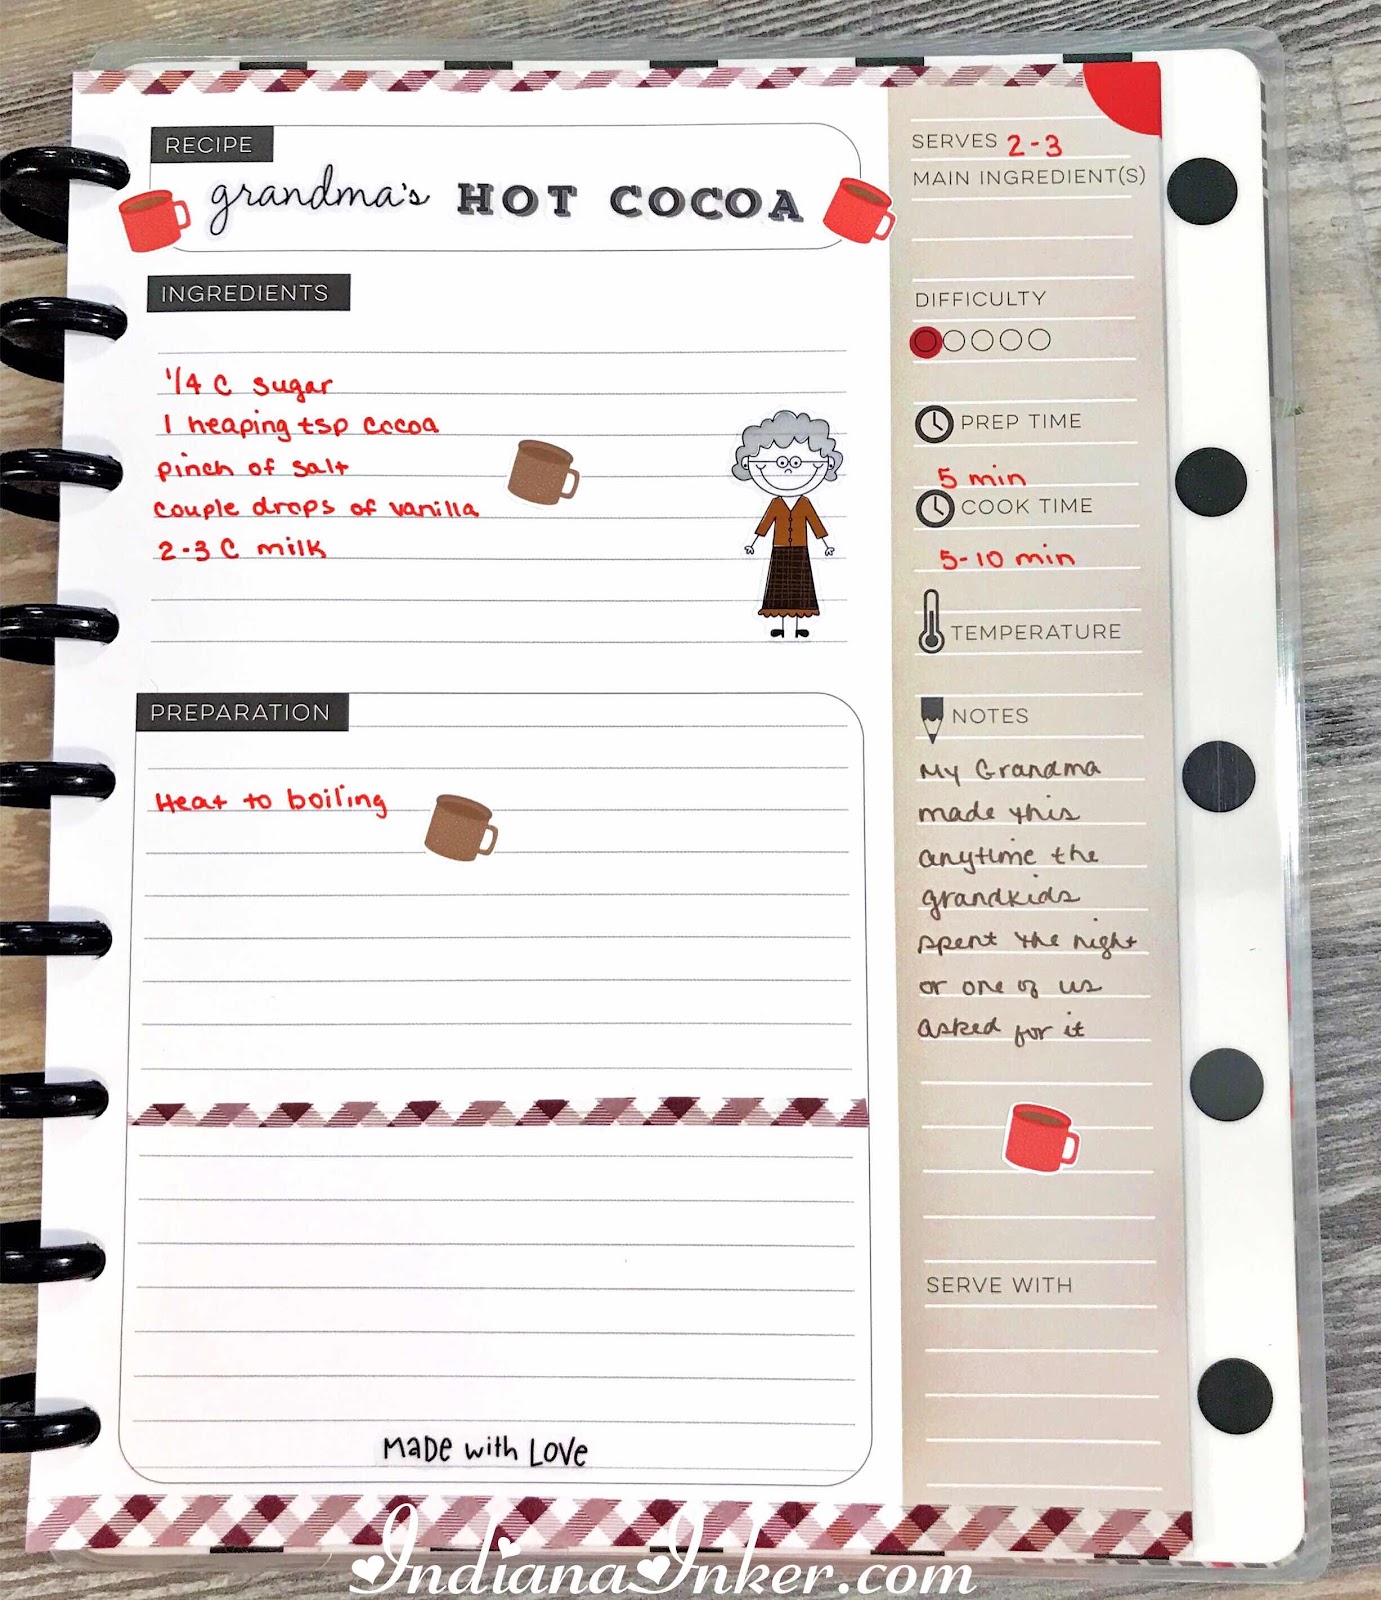 RECIPE
grandma's HOT COCOA
INGREDIENTS
1/4 C sugar
1 heaping tsp cocoa
pinch of salt
couple drops of vanilla
2-3 C milk
PREPARATION
Heat to boiling
MADE with LOVE
SERVES 2-3
MAIN INGREDIENT(S)
DIFFICULTY
PREP TIME
5 min
COOK TIME
5-10 min
TEMPERATURE
NOTES
My Grandma
made this
anytime the
grandkids
spent the night
or one of us
asked for it
SERVE WITH
IndianaInker.com